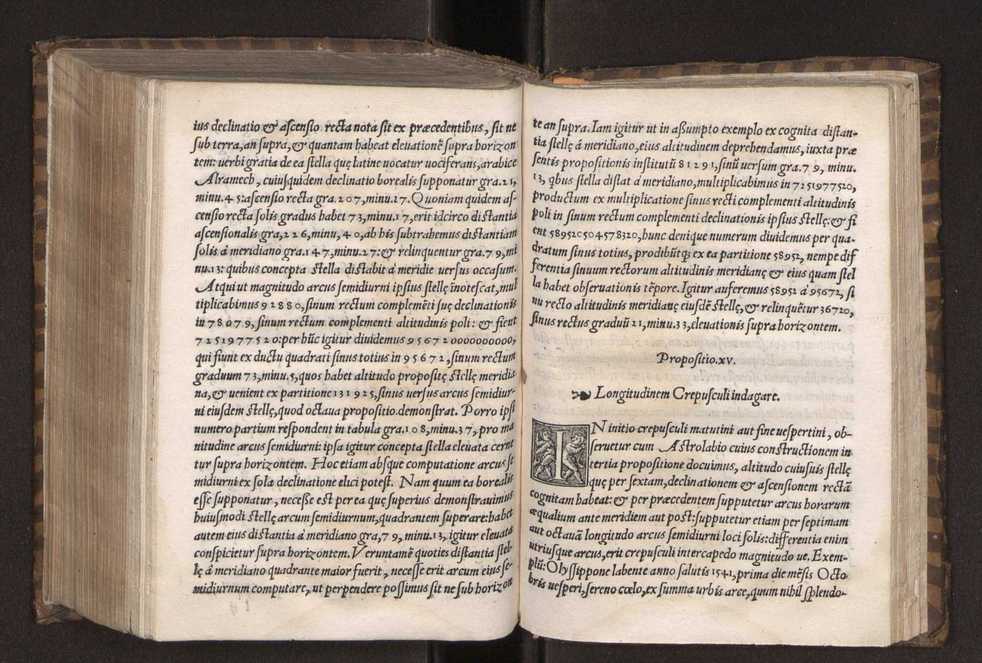 ius declinatio & ascensio recta nota sit ex præcedentibus, sit ne
sub terra, an supra, & quantam habeat eleuationẽ supra horizon
tem: uerbi gratia de ea stella que latine uocatur uociferans, arabice
Alramech, cuiusquidem declinatio borealis supponatur gra. 21,
minu. 45: ascensio recta gra. 207, minu. 17. Quoniam quidem as-
censio recta solis gradus habet 73, minu. 17, erit idcirco distantia
ascensionalis gra, 226, minu, 40, ab his subtrahemus distantiam
solis á meridiano gra. 147, minu. 27: & relinquentur gra. 79, mi
nu. 13: quibus concepta stella distabit á meridie uersus occasum.
Atqui ut magnitudo arcus semidiurni ipsius stellę inotescat, mul
tiplicabimus 92880, sinum rectum complemẽti suę declinationis
in 78079, sinum rectum complementi altitudinis poli: & fient
7251977520: per hũc igitur diuidemus 956720000000000,
qui fiunt ex ductu quadrati sinus totius in 95672, sinum rectum
graduum 73, minu. 5, quos habet altitudo propositę stellę meridia
na, & uenient ex partitione 131925, sinus uersus arcus semidiur-
ni eiusdem stellę, quod octaua propositio demonstrat. Porro ipsi
numero partium respondent in tabula gra. 108, minu. 37, pro ma
nitudine arcus semidiurni: ipsa igitur concepta stella eleuata cerne
tur supra horizontem. Hoc etiam absque computatione arcus se
midiurni ex sola declinatione elici potest. Nam quum ea borealis
esse supponatur, necesse est per ea quę superius demonstrauimus
huiusmodi stellę arcum semidiurnum, quadrantem superare: habet
autem eius distantia á meridiano gra, 79, minu. 13, igitur eleuata
conspicietur supra horizontem. Veruntamẽ quoties distantia stel-
lę á meridiano quadrante maior fuerit, necesse erit arcum eius se-
midiurnum computare, ut perpendere possimus sit ne sub horizon
te an supra. Iam igitur ut in assumpto exemplo ex cognita distan-
tia stellę á meridiano, eius altitudinem deprehendamus, iuxta præ
sentis propositionis institutũ 81291, sinũ uersum gra. 79, minu.
13, qbus stella distat á meridiano, multiplicabimus in 7251977520,
productum ex multiplicatione sinus recti complementi altitudinis
poli in sinum rectum complementi declinationis ipsius stellę: & fi
ent 589520504578320, hunc denique numerum diuidemus per qua-
dratum sinus totius, prodibũtqʒ ex ea partitione 58952, nempe dif
ferentia sinuum rectorum altitudinis meridianę & eius quam stel
la habet obseruationis tẽpore. Igitur auferemus 58952 á 95672, si
nu recto altitudinis meridianę eiusdẽ stellę, & relinquẽtur 36720,
sinus rectus graduũ 21, minu. 33, eleuationis supra horizontem.
Propositio. xv.
Longitudinem Crepusculi indagare.
IN initio crepusculi matutini aut fine uespertini, ob-
seruetur cum Astrolabio cuius constructionem in
tertia propositione docuimus, altitudo cuiusuis stellę
quę per sextam, declinationem & ascensionem rectã
cognitam habeat: & per præcedentem supputetur arcus horarum
æqualium ante meridiem aut post: supputetur etiam per septimam
aut octauã longitudo arcus semidiurni loci solis: differentia enim
utriusque arcus, erit crepusculi intercapedo magnitudo ue. Exem-
plũ: Olyssippone labente anno salutis 1541, prima die mẽsis Octo
bris uesperi, sereno cœlo, ex summa urbis arce, quum nihil splendo-